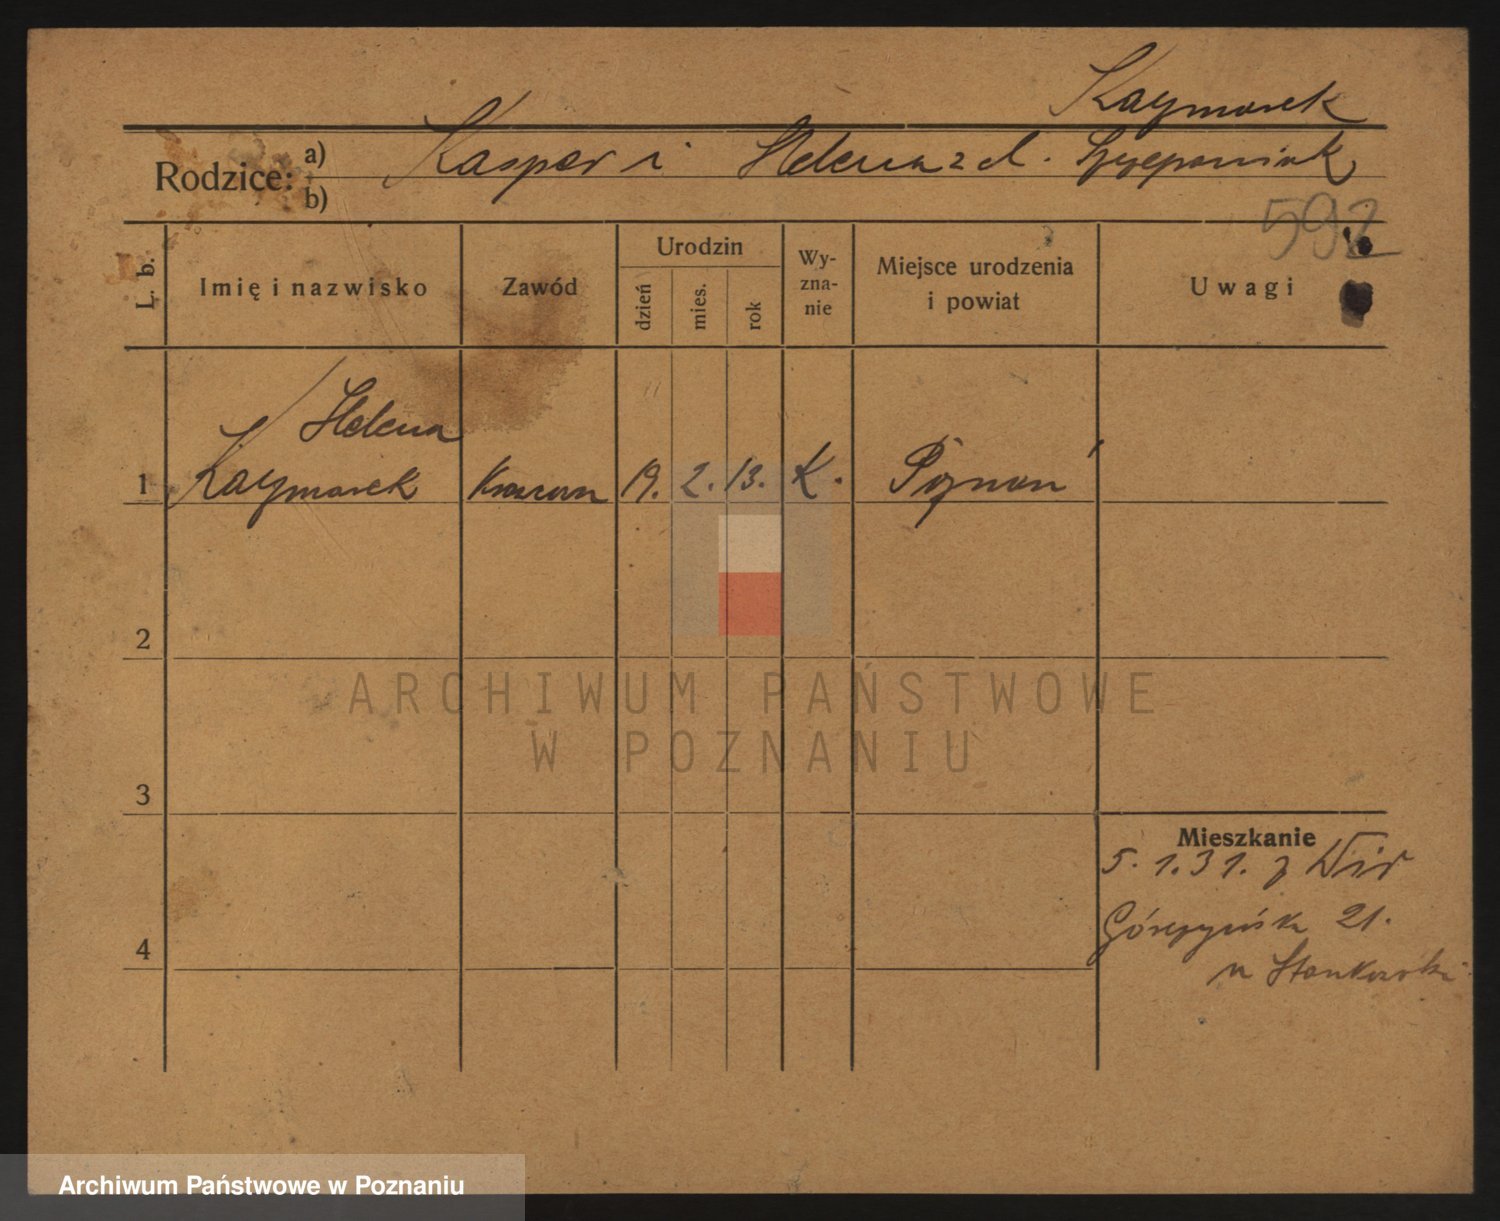 Kaczmarek
Rodzice: a) Kasper i Helena z d. Szczepaniak
b)
592
L. b.
Imię i nazwisko
Zawód
Urodzin
dzień
mies.
rok
Wy-
zna-
nie
Miejsce urodzenia
i powiat
Uwagi
Helena
1 Kaczmarek Krawcowa 19. 2. 13. K. Poznań
2
ARCHIWUM PAŃSTWOWE
W POZNANIU
3
Mieszkanie
5. 1. 31. z Wir
Górczyńsk 21.
4
u Stankowski
Archiwum Państwowe w Poznaniu